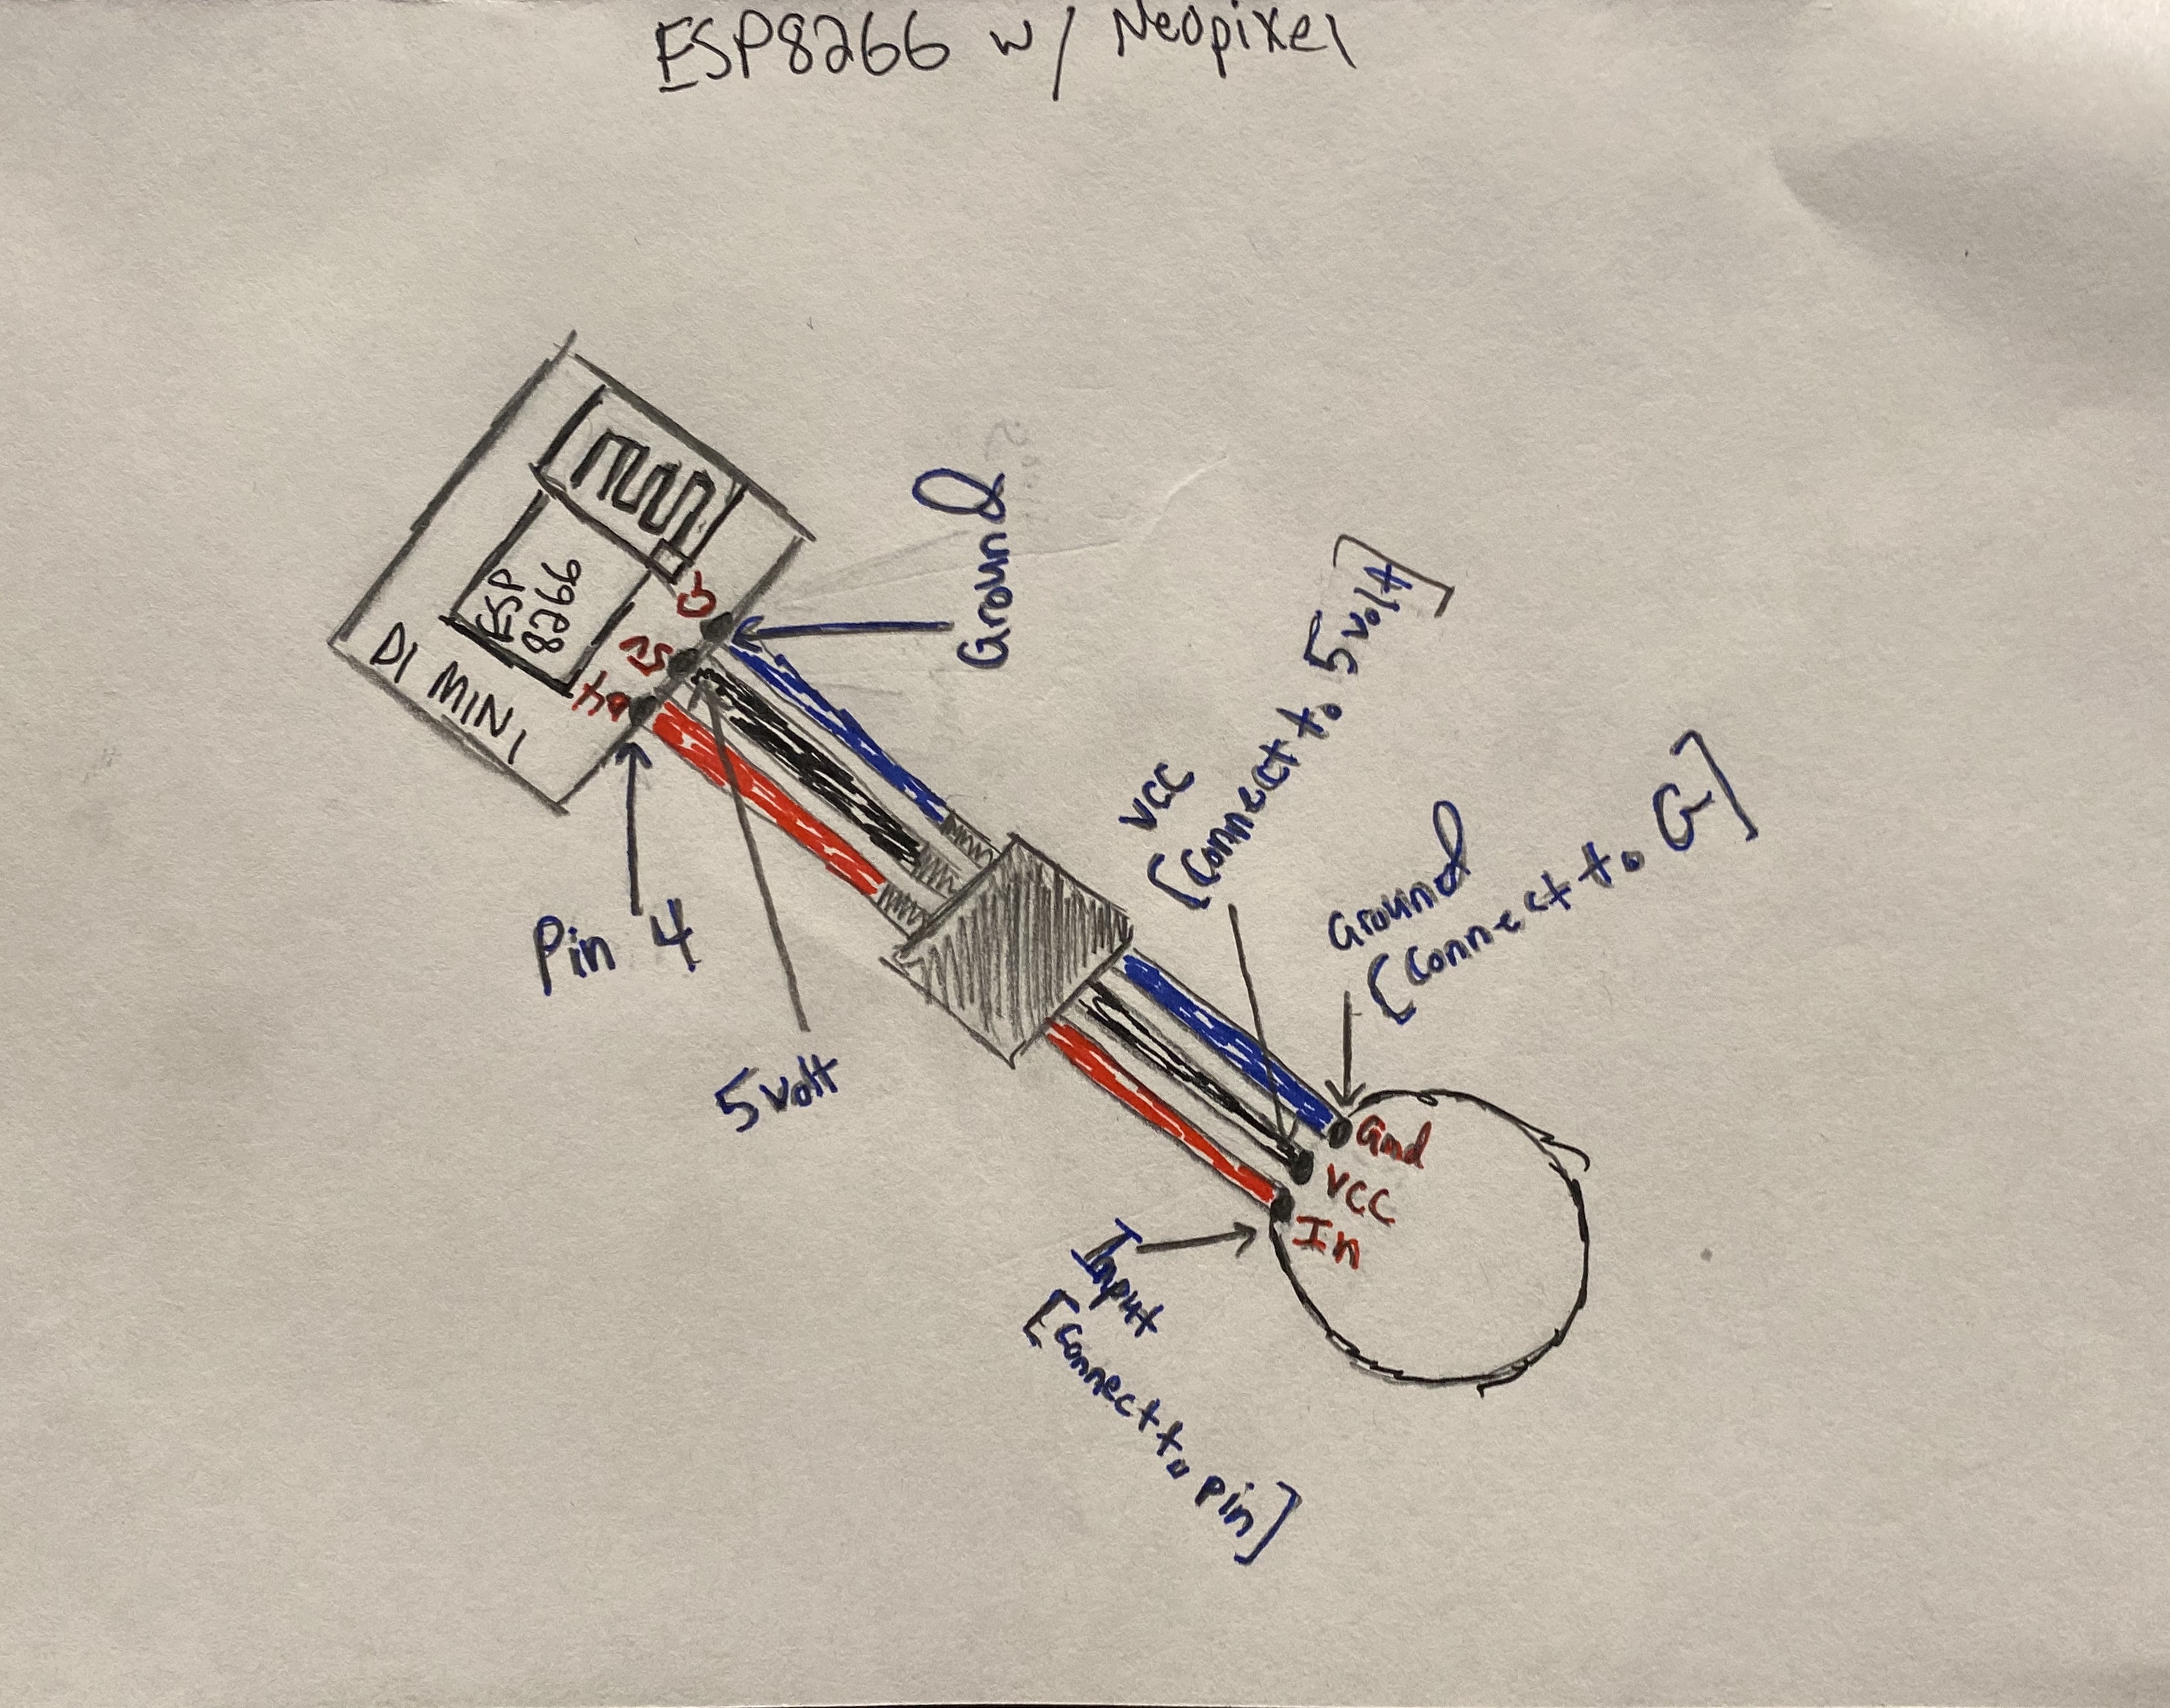 ESP8266 w/ Neopixel
ESP
8266
D1 MINI
G
5V
D4
Ground
Pin 4
5volt
VCC
[Connect to 5volt]
Ground
[Connect to G]
Gnd
VCC
In
Input
[Connect to pin]